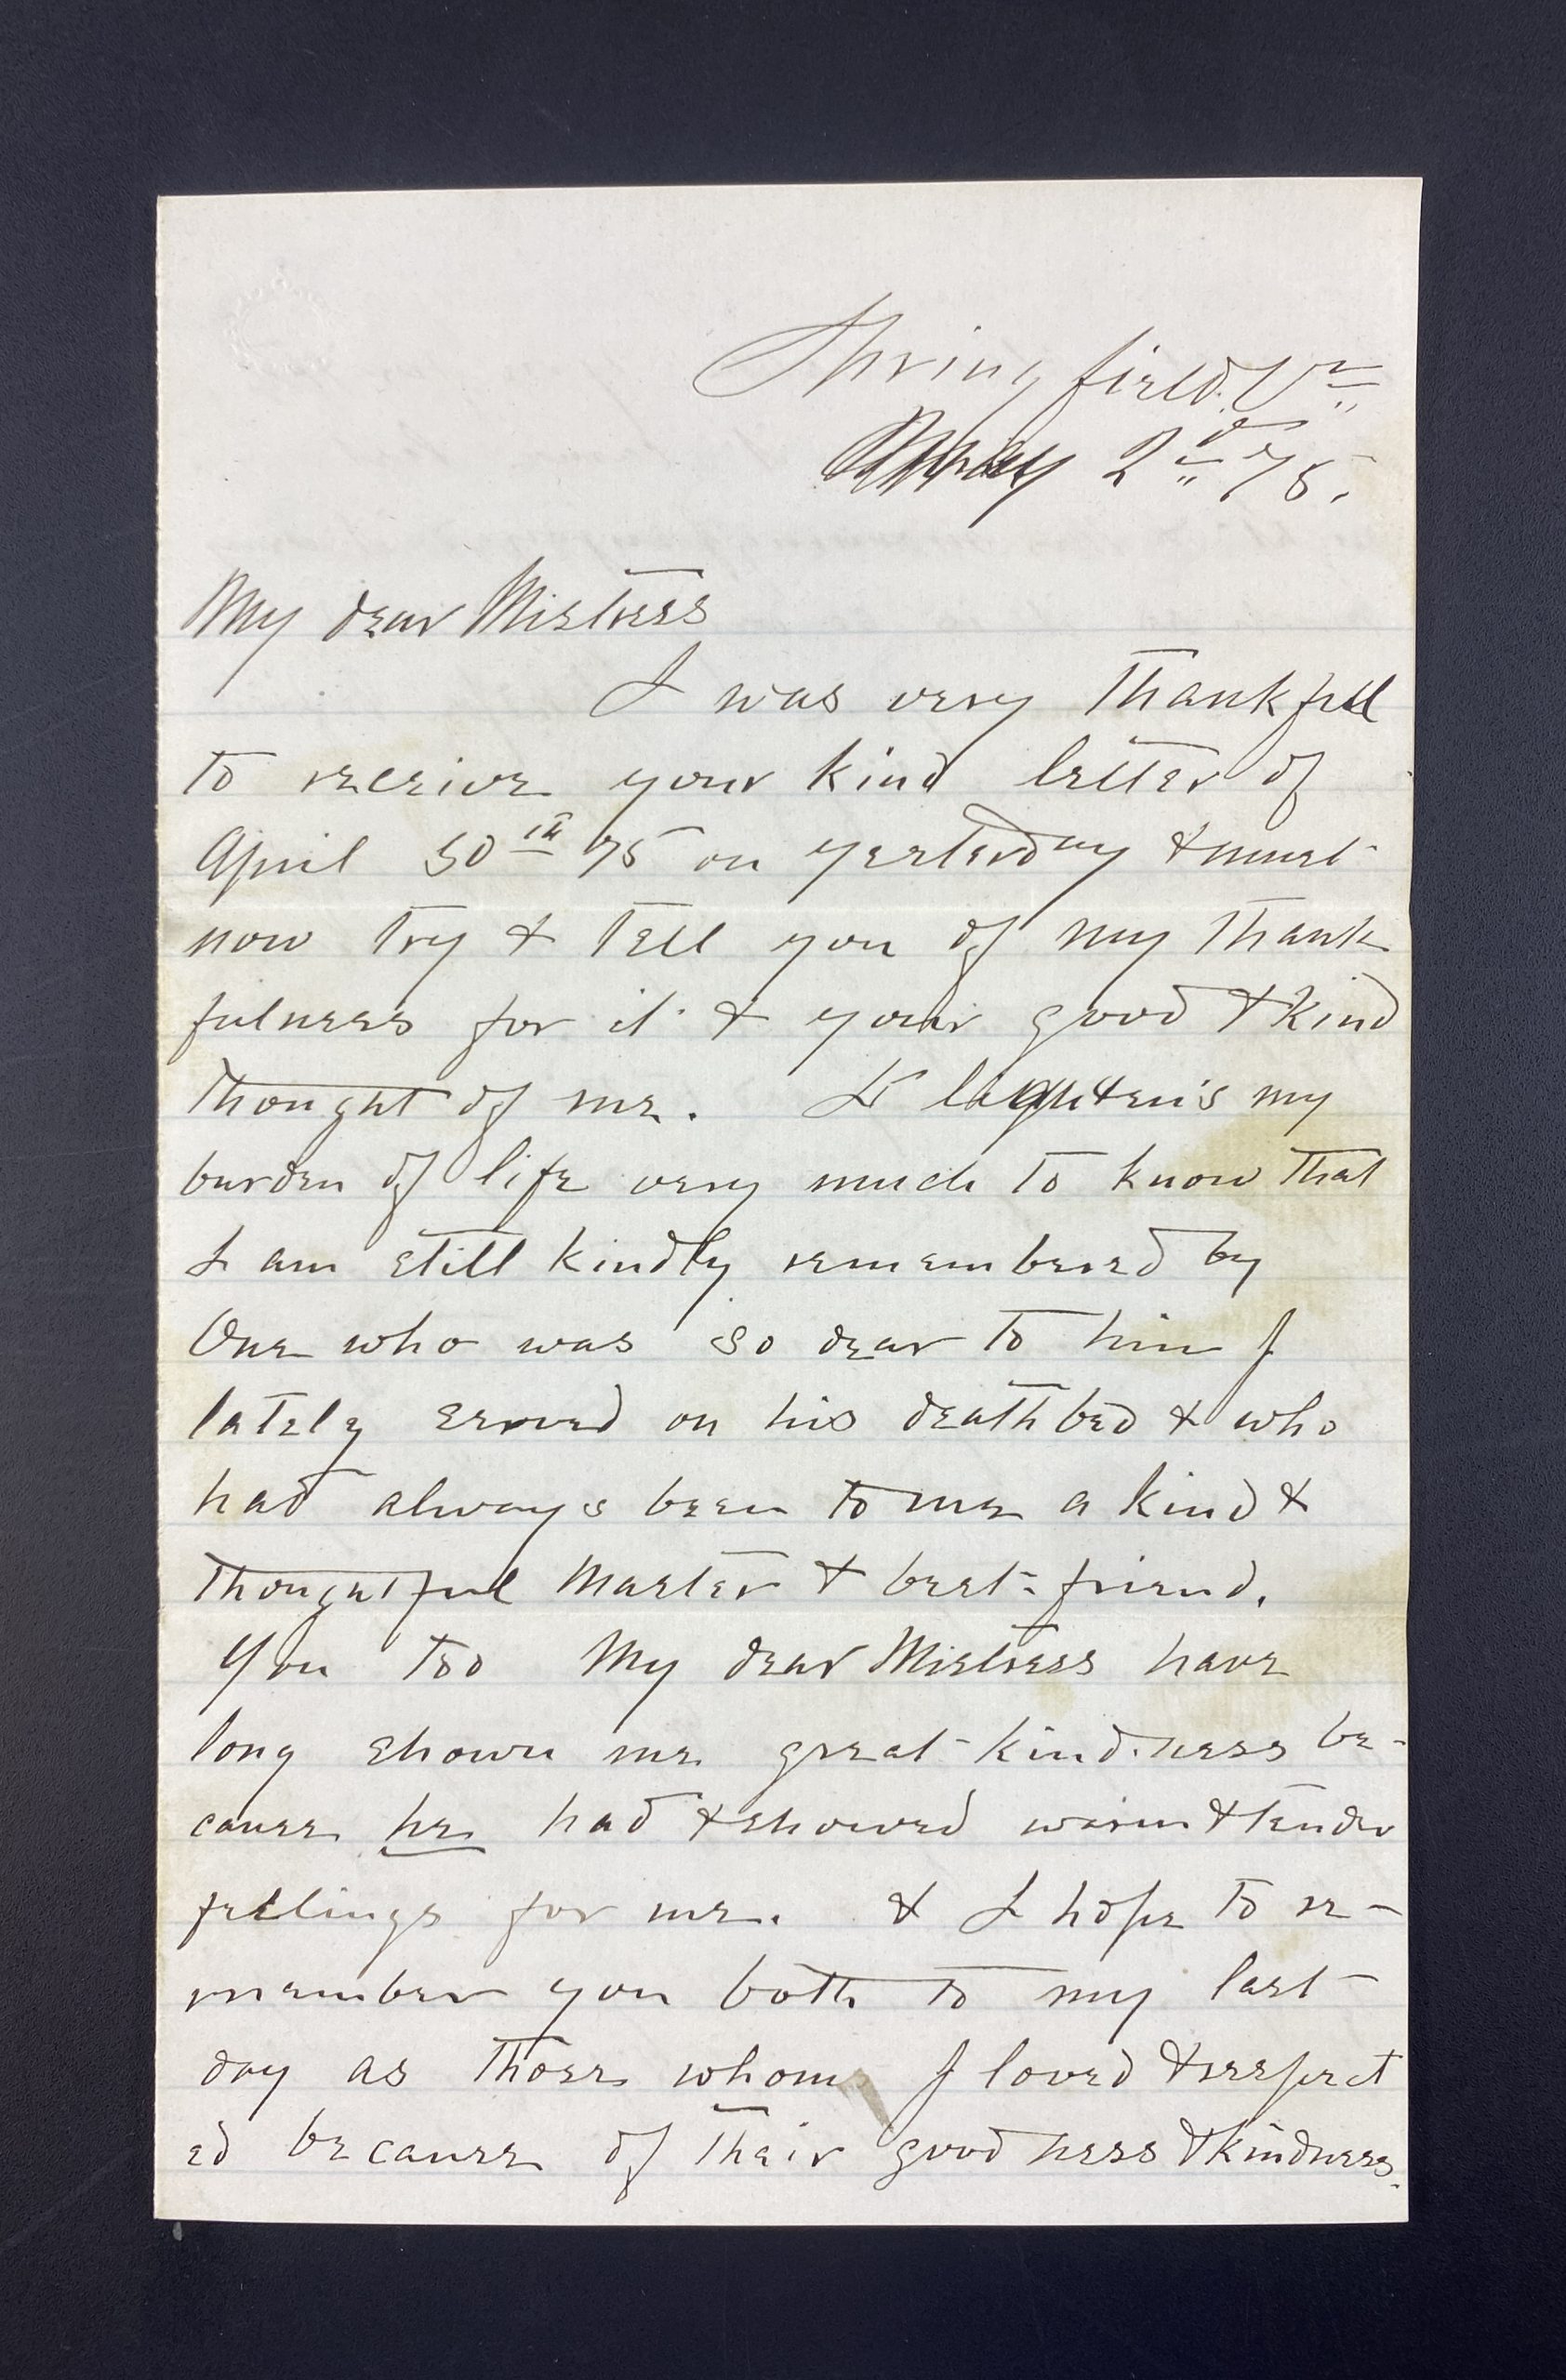 Springfield. Va
May 2d 75.
My dear Mistress
I was very thankful
to receive your kind letter of
April 30th 75 on yesterday & must
now try & tell you of my thank
fulness for it & your good & kind
thought of me. It lightens my
burden of life very much to know that
I am still kindly remembered by
One who was so dear to him I
lately served on his deathbed & who
had always been to me a kind &
thoughtful Master & best friend.
You too My dear Mistress have
long shown me great kindness be-
cause he had & showed warm & tender
feelings for me. & I hope to re-
member you both to my last
day as those whom I loved & respect
ed because of their goodness & kindness.